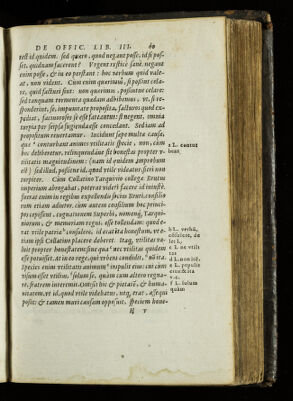 DE OFFIC. LIB. III. 60
rect id quidem. sed quæro, quod negant posse, id si pos-
set, quidnam facerent? Vrgent rustice sane. negant
enim posse, & in eo perstant: hoc verbum quid vale-
at, non vident. Cum enim quærimus, si possint cela-
re, quid facturi sint: non quærimus, possintne celare:
sed tanquam tormenta quædam adhibemus, vt, si re-
sponderint, se, impunitate proposita, facturos quod ex-
pediat, facinorosos se esse fateantur: si negent, omnia
turpia per seipsa fugienda esse concedant. Sed iam ad
propositum reuertamur. Incidunt sæpe multæ causæ,
quæ conturbent animos vtilitatis specie, non, cum
hoc deliberetur, relinquendáne sit honestas propter v-
tilitatis magnitudinem: (nam id quidem improbum
est) sed illud, possitne id, quod vtile videatur, fieri non
turpiter. Cum Collatino Tarquinio collegæ Brutus
imperium abrogabat, poterat videri facere id iniuste.
fuerat enim in regibus expellendis socius Bruti, consilio-
rum etiam adiutor. cum autem consilium hoc princi-
pes cepissent, cognationem Superbi, nomenq́; Tarqui-
niorum, & memoriam regni esse tollendam: quod e-
rat vtile patriæ consulere, id erat ita honestum, vt e-
tiam ipsi Collatino placere deberet. Itaq; vtilitas va-
luit propter honestatem: sine qua nec vtilitas quidem
esse potuisset. at in eo rege, qui vrbem condidit, non ita.
Species enim vtilitatis animum pepulit eius: cui cùm
visum esset vtilius, solum se, quàm cum altero regna-
re, fratrem interemit. Omisit hic & pietatem, & huma-
nitatem, vt id, quod vtile videbatur, neq; erat, assequi
posset: & tamen muri causam opposuit. speciem hone-
H v
a L. contur
bent
b L. verbũ,